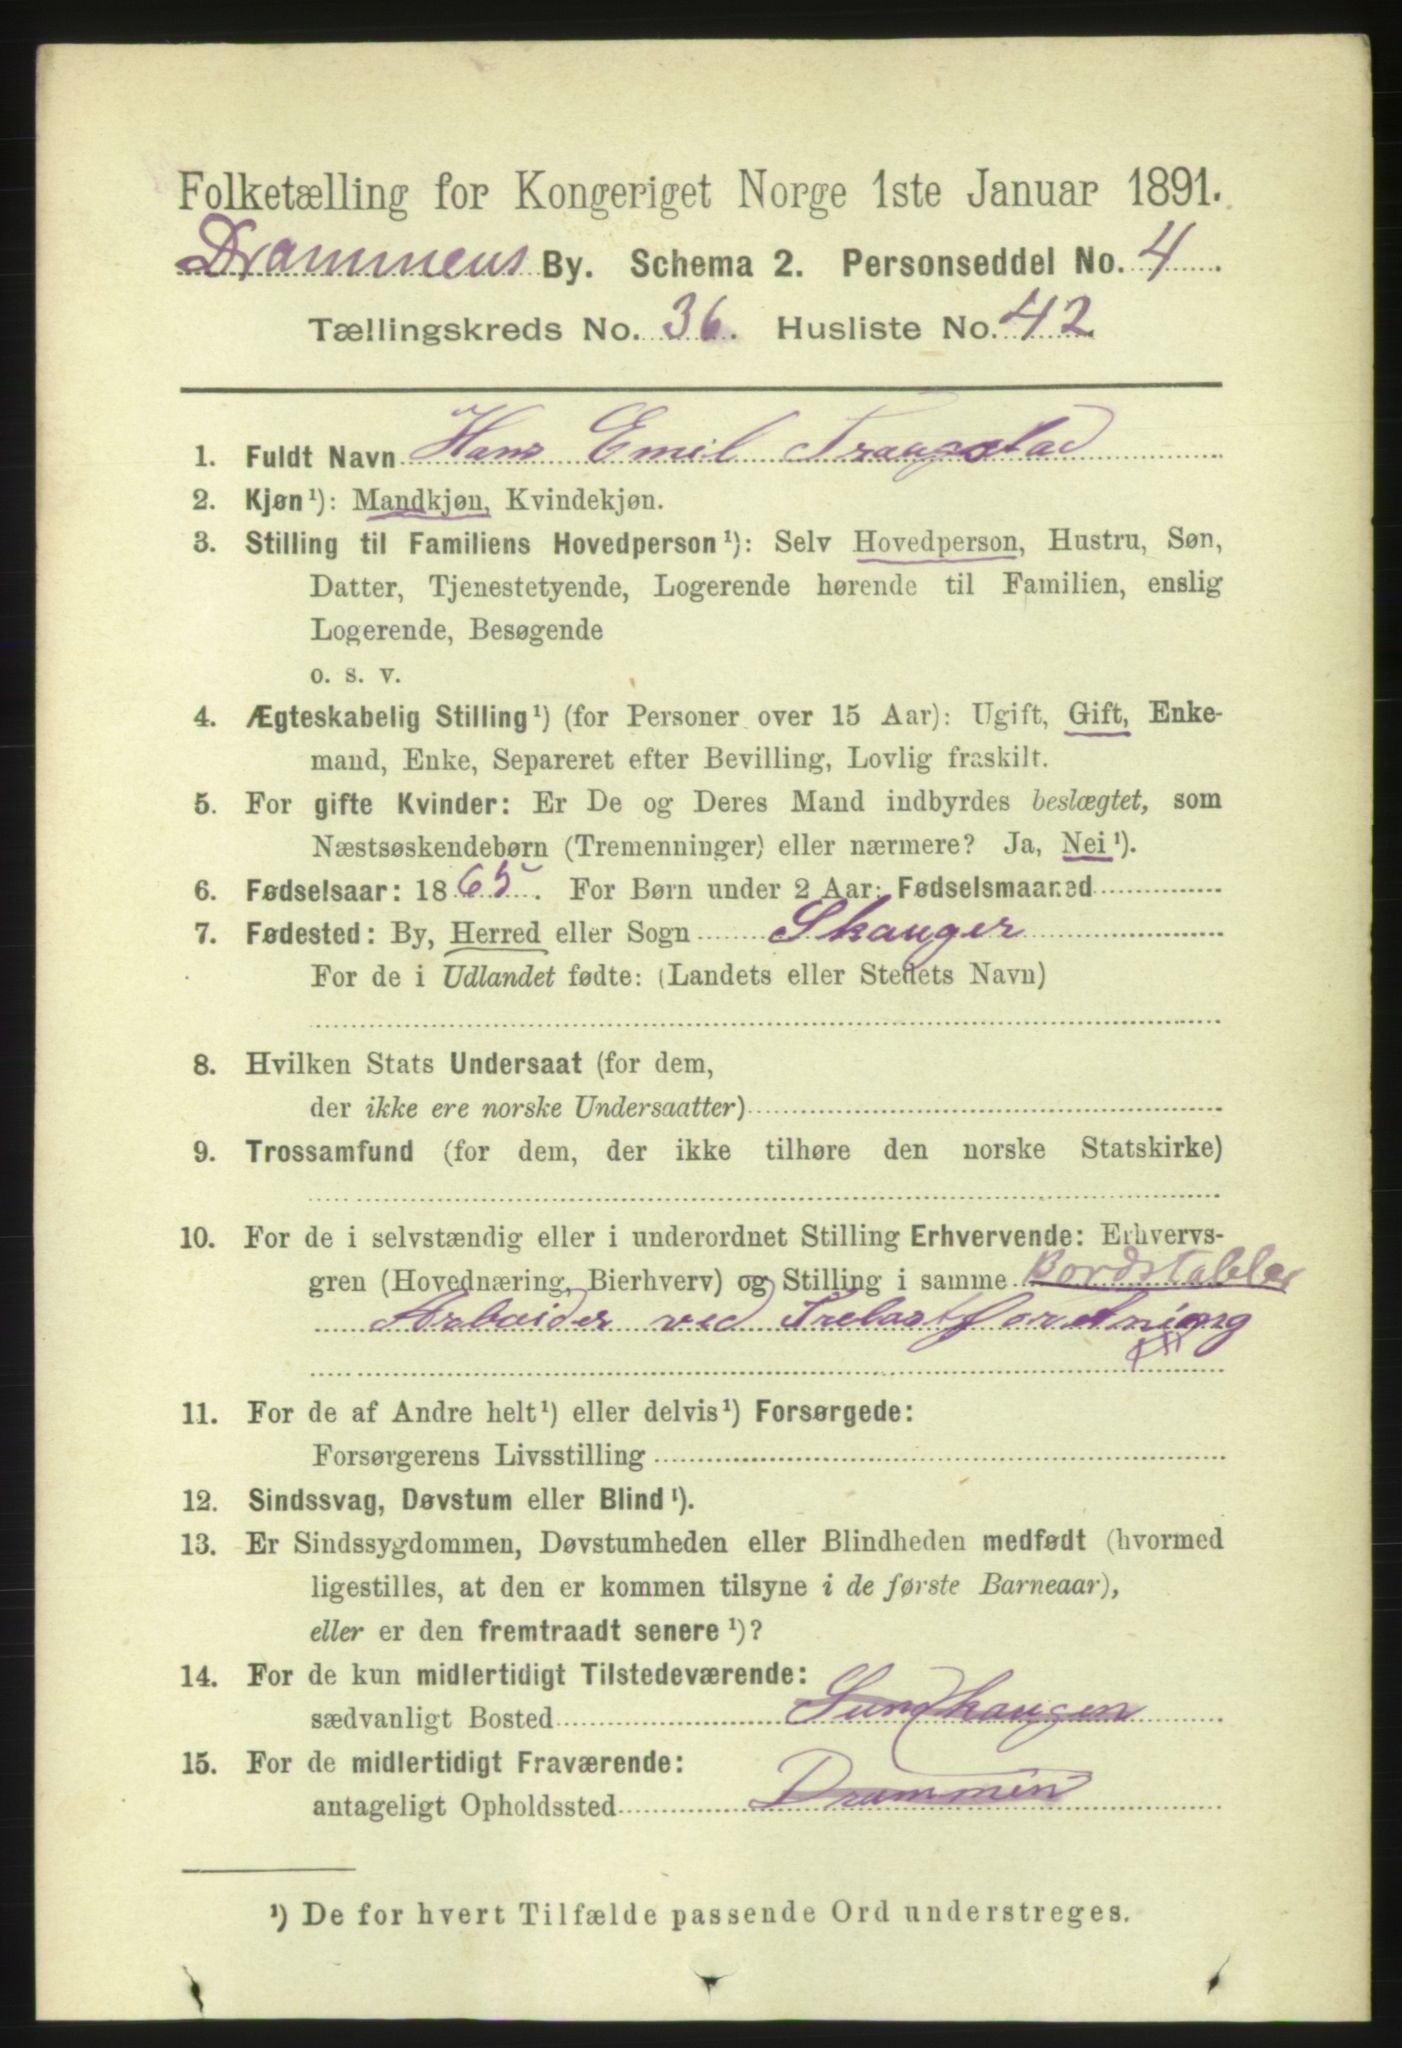 Folketælling for Kongeriget Norge 1ste Januar 1891.
Drammens By. Schema 2. Personseddel No. 4.
Tællingskreds No. 36. Husliste No. 42
1. Fuldt Navn Hans Emil
2. Kjøn¹): Mandkjøn, Kvindekjøn.
3. Stilling til Familiens Hovedperson¹): Selv Hovedperson, Hustru, Søn,
Datter, Tjenestetyende, Logerende hørende til Familien, enslig
Logerende, Besøgende
o. s. v.
4. Ægteskabelig Stilling¹) (for Personer over 15 Aar): Ugift, Gift, Enke-
mand, Enke, Separeret efter Bevilling, Lovlig fraskilt.
5. For gifte Kvinder: Er De og Deres Mand indbyrdes beslægtet, som
Næstsøskendebørn (Tremenninger) eller nærmere? Ja, Nei¹).
6. Fødselsaar: 1865. For Børn under 2 Aar: Fødselsmaaned
7. Fødested: By, Herred eller Sogn Skauger
For de i Udlandet fødte: (Landets eller Stedets Navn)
8. Hvilken Stats Undersaat (for dem,
der ikke ere norske Undersaatter)
9. Trossamfund (for dem, der ikke tilhøre den norske Statskirke)
10. For de i selvstændig eller i underordnet Stilling Erhvervende: Erhvervs-
gren (Hovednæring, Bierhverv) og Stilling i samme Bordstabler
Arbeider ved Trelastforretning
11. For de af Andre helt¹) eller delvis¹) Forsørgede:
Forsørgerens Livsstilling
12. Sindssvag, Døvstum eller Blind¹).
13. Er Sindssygdommen, Døvstumheden eller Blindheden medfødt (hvormed
ligestilles, at den er kommen tilsyne i de første Barneaar),
eller er den fremtraadt senere¹)?
14. For de kun midlertidigt Tilstedeværende:
sædvanligt Bosted Sundhaugen
15. For de midlertidigt Fraværende:
antageligt Opholdssted Drammen
¹) De for hvert Tilfælde passende Ord understreges.